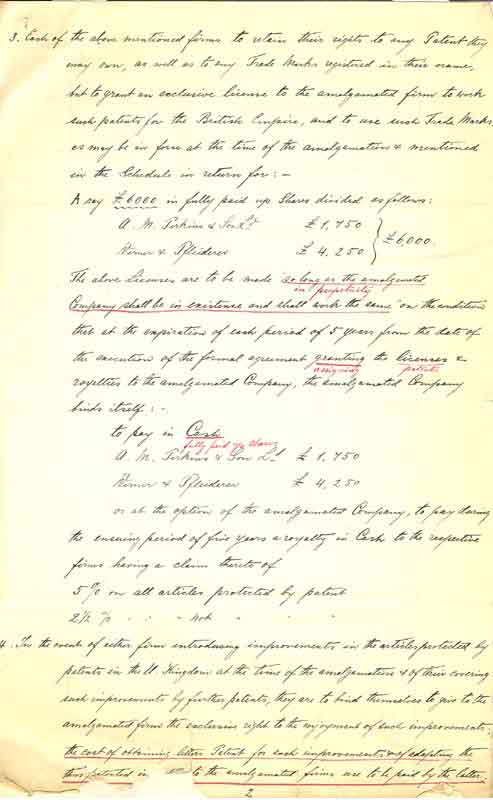 3. Each of the above mentioned firms to retain their rights to any Patent they
may own, as well as to any Trade Marks registered in their name,
but to grant an exclusive license to the amalgamated firm to work
such patents for the British Empire, and to use such Trade Marks
as may be in force at the time of the amalgamation & mentioned
in the Schedule in return for: -
A say £6000 in fully paid up Shares divided as follows:
A. M. Perkins & Son Ld £ 1,750
Werner & Pfleiderer £ 4,250 } £6000.
The above Licenses are to be made "so long as the amalgamated
in perpetuity
Company shall be in existence and shall work the same" on the condition
that at the expiration of each period of 5 years from the date of
the execution of the formal agreement granting the licenses &
assigning patents
royalties to the amalgamated Company, the amalgamated Company
binds itself: -
to pay in Cash
fully paid up shares
A. M. Perkins & Son Ld £ 1,750
Werner & Pfleiderer £ 4,250
or at the option of the amalgamated Company, to pay during
the ensuing period of five years a royalty in Cash to the respective
firms having a claim thereto of
5% on all articles protected by patent
2½ % " " " not " " "
4. In the event of either firm introducing improvements in the articles protected by
patents in the U. Kingdom at the time of the amalgamation & of their covering
such improvements by further patents, they are to bind themselves to give to the
amalgamated firm the exclusive right to the enjoyment of such improvements;
the cost of obtaining letters Patent for such improvements & of adapting the
patented in to the amalgamated firms are to be paid by the latter.
2